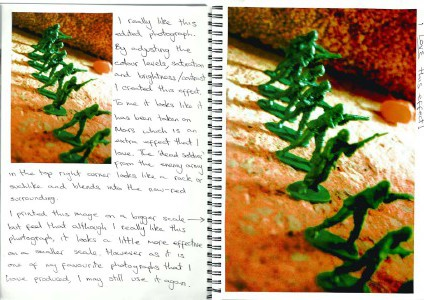 I really like this
edited photograph.
By adjusting the
colour levels, saturation
and brightness/contrast
I created this effect.
To me it looks like it
has been taken on
Mars which is an
extra effect that I
love. The 'dead soldier'
from the enemy army
in the top right corner looks like a rock or
suchlike and blends into the now-red
surrounding.
I printed this image on a bigger scale →
but feel that although I really like this
photograph, it looks a little more effective
on a smaller scale. However as it is
one of my favourite photographs that I
have produced, I may still use it again.
I LOVE this effect!